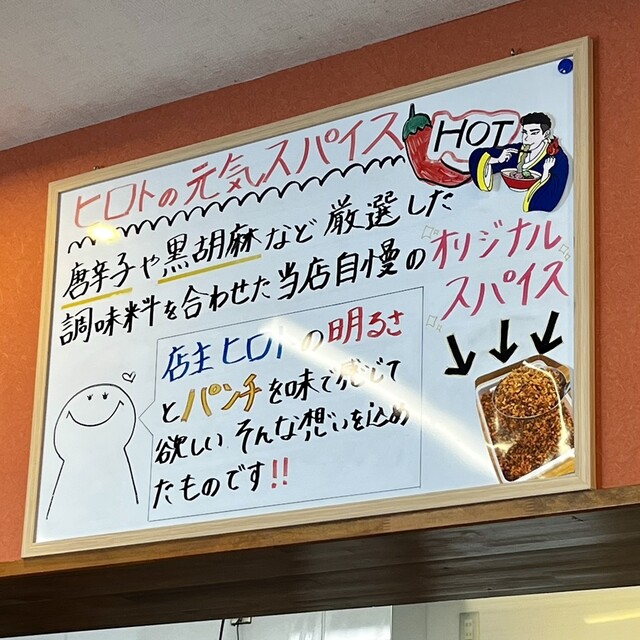 ヒロトの元気スパイス
HOT
唐辛子や黒胡麻など厳選した
調味料を合わせた当店自慢の
オリジナル
スパイス
店主ヒロトの明るさ
とパンチを味で感じて
欲しい、そんな想いを込め
たものです!!